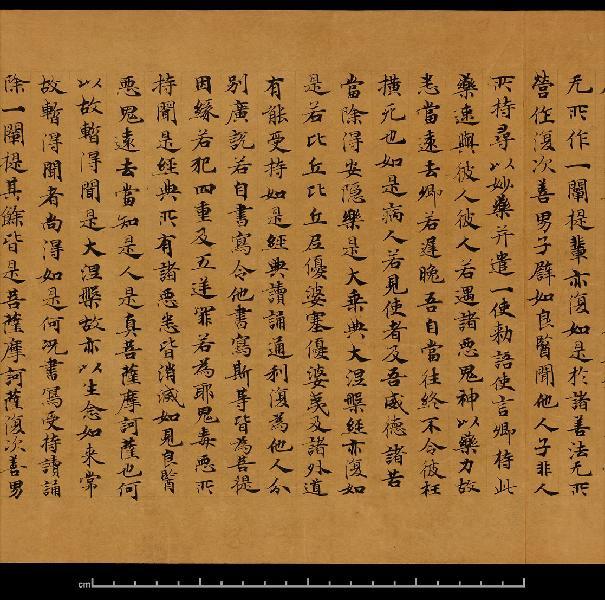 无所作一闡提輩亦復如是於諸善法无所
營作復次善男子譬如良醫聞他人子非人
所持尋以妙藥并遣一使勑語使言卿持此
藥速與彼人彼人若遇諸惡鬼神以藥力故
悉當遠去卿若遲晚吾自當往終不令彼枉
橫死也如是病人若見使者及吾威德諸苦
當除得安隱樂是大乘典大涅槃經亦復如
是若比丘比丘尼優婆塞優婆夷及諸外道
有能受持如是經典讀誦通利復為他人分
別廣說若自書寫令他書寫斯等皆為菩提
因緣若犯四重及五逆罪若為耶鬼毒惡所
持聞是經典所有諸惡悉皆消滅如見良醫
惡鬼遠去當知是人是真菩薩摩訶薩也何
以故暫得聞是大涅槃故亦以生念如來常
故暫得聞者尚得如是何況書寫受持讀誦
除一闡提其餘皆是菩薩摩訶薩復次善男
cm